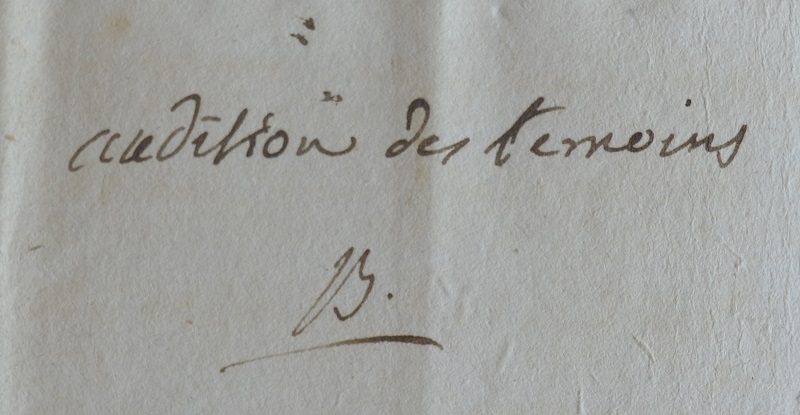 audition des temoins
B.